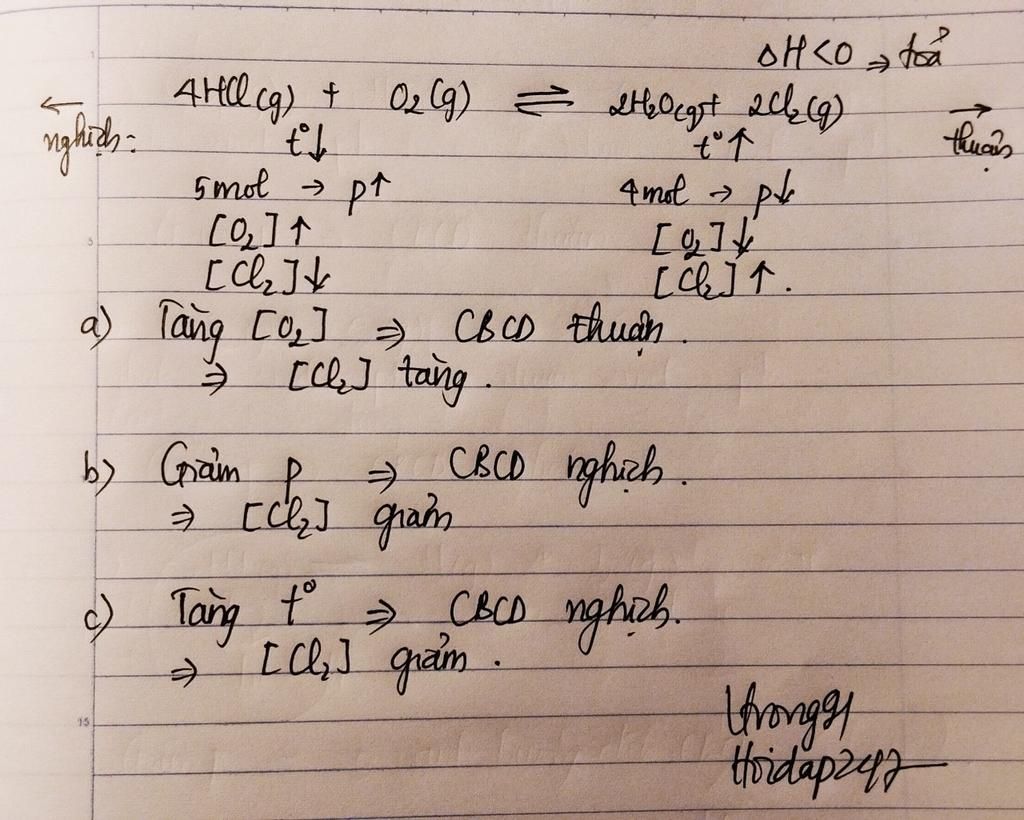 ΔH<0 ⇒ toả
← 4HCl(g) + O₂(g) ⇌ 2H₂O(g) + 2Cl₂(g) →
nghịch: t°↓ t°↑ thuận
5mol → p↑ 4mol → p↓
[O₂]↑ [O₂]↓
[Cl₂]↓ [Cl₂]↑.
a) Tăng [O₂] ⇒ CBCD thuận.
⇒ [Cl₂] tăng.
b) Giảm p ⇒ CBCD nghịch.
⇒ [Cl₂] giảm
c) Tăng t° ⇒ CBCD nghịch.
⇒ [Cl₂] giảm.
15
Hoidap247